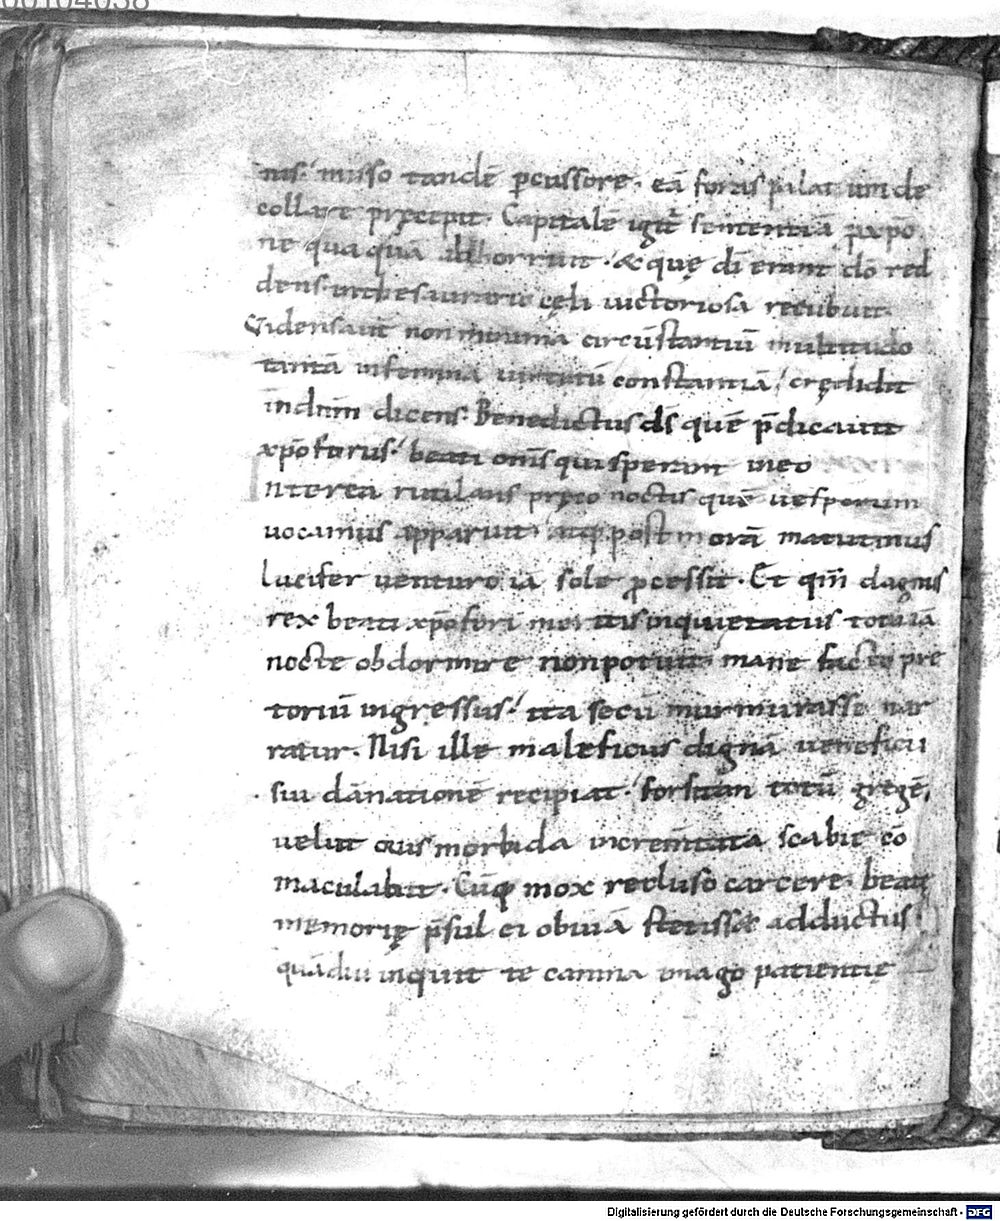 00104038
nis. misso tandē ꝑcussore. eā foras palatium de
collare pręcepit. Capitalē igit̄ sententiā ꝓ xp̄o
ne quaquā abhorruit. & quę dī erant dō red
dens. inthesaurario cęli uictoriosa recubuit.
Uidens aut non minima circūstantiū multitudo
tantā infemina uirtutū constantiā, credidit
indn̄m dicens. Benedictus ds̄ quē p̄dicauit
xp̄oforus. beati om̄s qui sperant ineo
nterea rutilans pręco noctis quē uesperum
uocamus apparuit. atq; post morā matutinus
lucifer uenturo iā sole ꝓcessit. Et qm̄ dagnus
rex beati xp̄ofori inquietatus totā
nocte obdormire non potuit. mane facto pre
toriū ingressus. ita secū murmurasse nar
ratur. Nisi ille maleficus dignā ueneficii
sui dānationē recipiat. forsitan totū gregē,
uelut ouis morbida incrementata scabie co
maculabit. Cūq; mox recluso carcere. beatę
memorię p̄sul ei obuiā stetisset adductus.
quādiu inquit te canina imago patientię
Digitalisierung gefördert durch die Deutsche Forschungsgemeinschaft - DFG